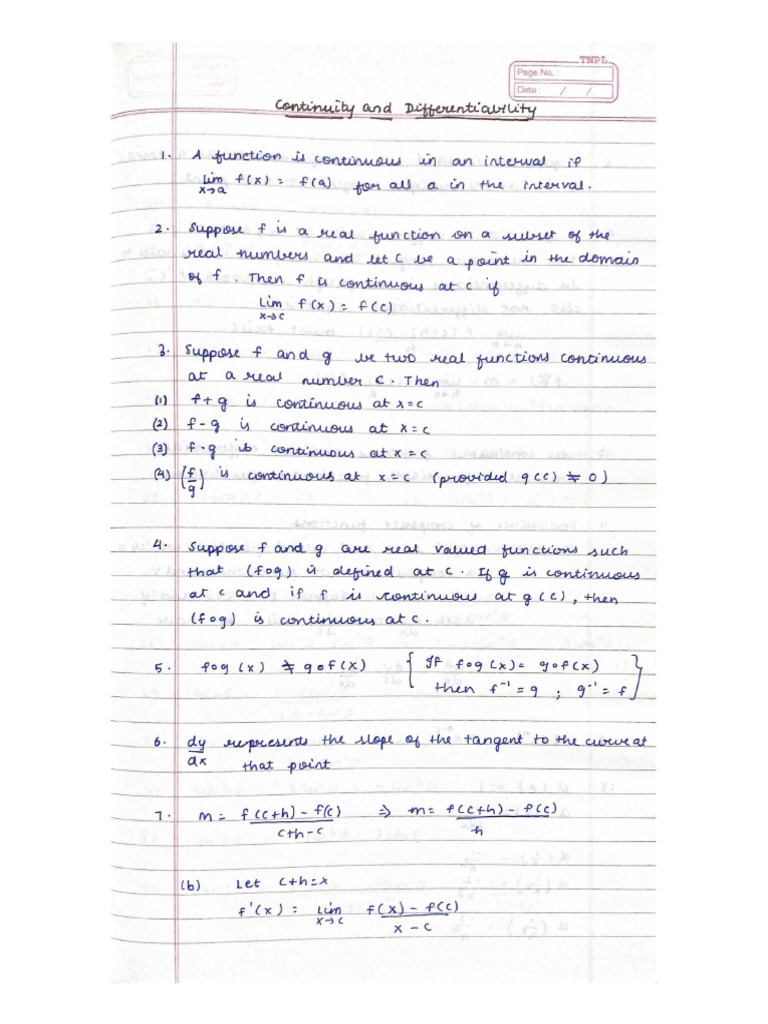 TNPL
Page No. :
Date : / /
Continuity and Differentiability
1. A function is continuous in an interval if
lim x→a f(x) = f(a) for all a in the interval.
2. Suppose f is a real function on a subset of the
real numbers and let C be a point in the domain
of f. Then f is continuous at c if
Lim x→c f(x) = f(c)
3. Suppose f and g be two real functions continuous
at a real number C. Then
(1) f+g is continuous at x=c
(2) f-g is continuous at x=c
(3) f·g is continuous at x=c
(4) (f/g) is continuous at x=c (provided g(c) ≠ 0)
4. Suppose f and g are real valued functions such
that (fog) is defined at c. If g is continuous
at c and if f is continuous at g(c), then
(fog) is continuous at c.
5. fog(x) ≠ gof(x) { If fog(x) = gof(x)
then f⁻¹ = g ; g⁻¹ = f }
6. dy/dx represents the slope of the tangent to the curve at
that point
7. m = f(c+h) - f(c) / c+h-c ⇒ m = f(c+h) - f(c) / h
(b) Let c+h=x
f'(x) = lim x→c f(x) - f(c) / x-c